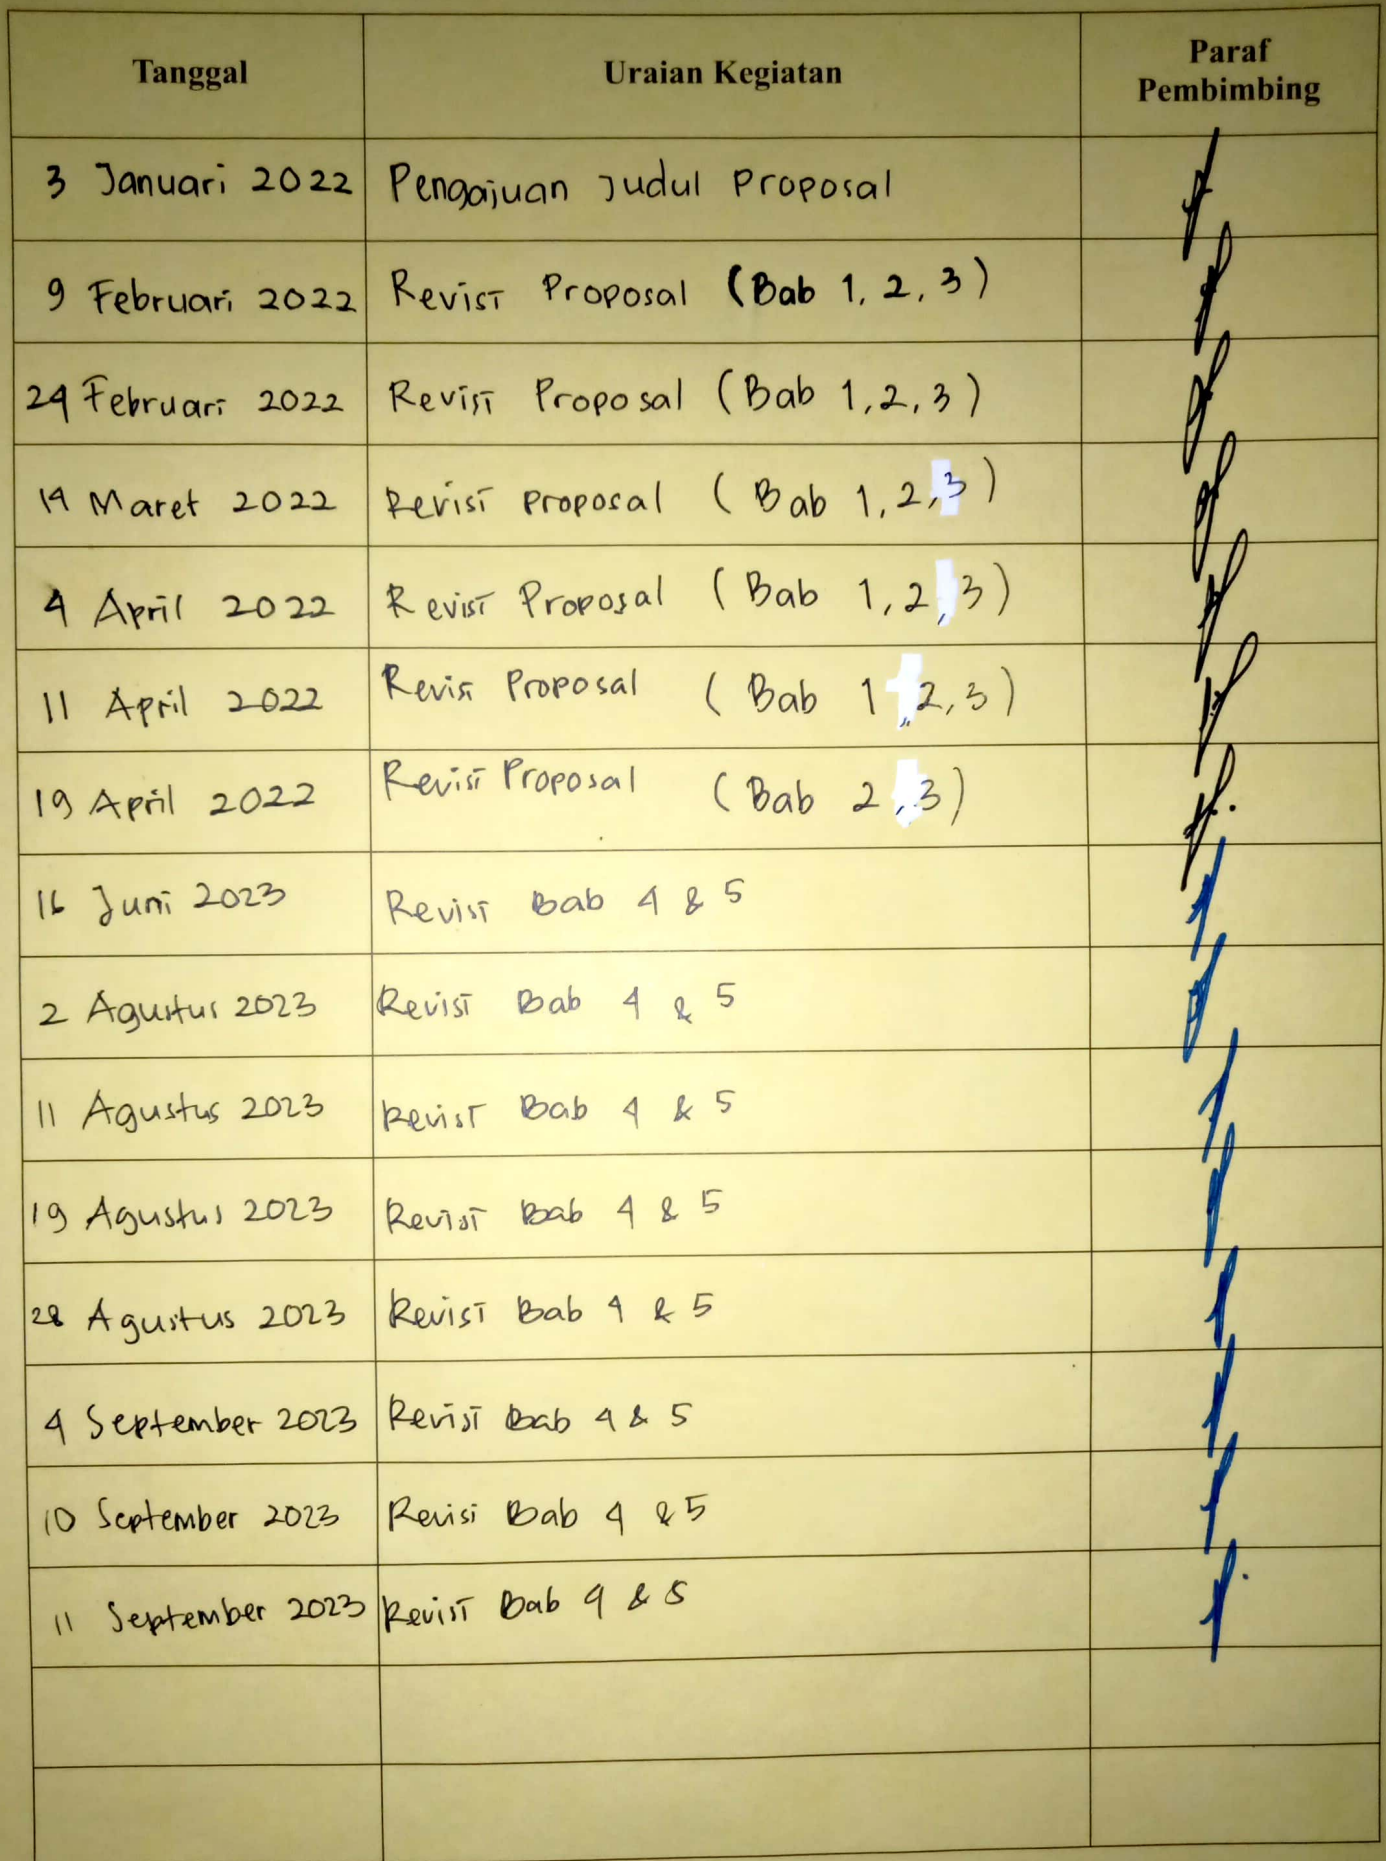 Tanggal Uraian Kegiatan Paraf Pembimbing
3 Januari 2022 Pengajuan Judul Proposal
9 Februari 2022 Revisi Proposal (Bab 1, 2, 3)
24 Februari 2022 Revisi Proposal (Bab 1, 2, 3)
14 Maret 2022 Revisi Proposal (Bab 1, 2, 3)
4 April 2022 Revisi Proposal (Bab 1, 2, 3)
11 April 2022 Revisi Proposal (Bab 1, 2, 3)
19 April 2022 Revisi Proposal (Bab 2, 3)
16 Juni 2023 Revisi Bab 4 & 5
2 Agustus 2023 Revisi Bab 4 & 5
11 Agustus 2023 Revisi Bab 4 & 5
19 Agustus 2023 Revisi Bab 4 & 5
28 Agustus 2023 Revisi Bab 4 & 5
4 September 2023 Revisi Bab 4 & 5
10 September 2023 Revisi Bab 4 & 5
11 September 2023 Revisi Bab 4 & 5